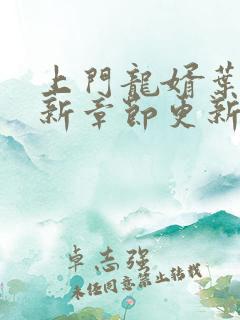 上門龍婿葉
新章節更新
卓志强
未经同意禁止转载